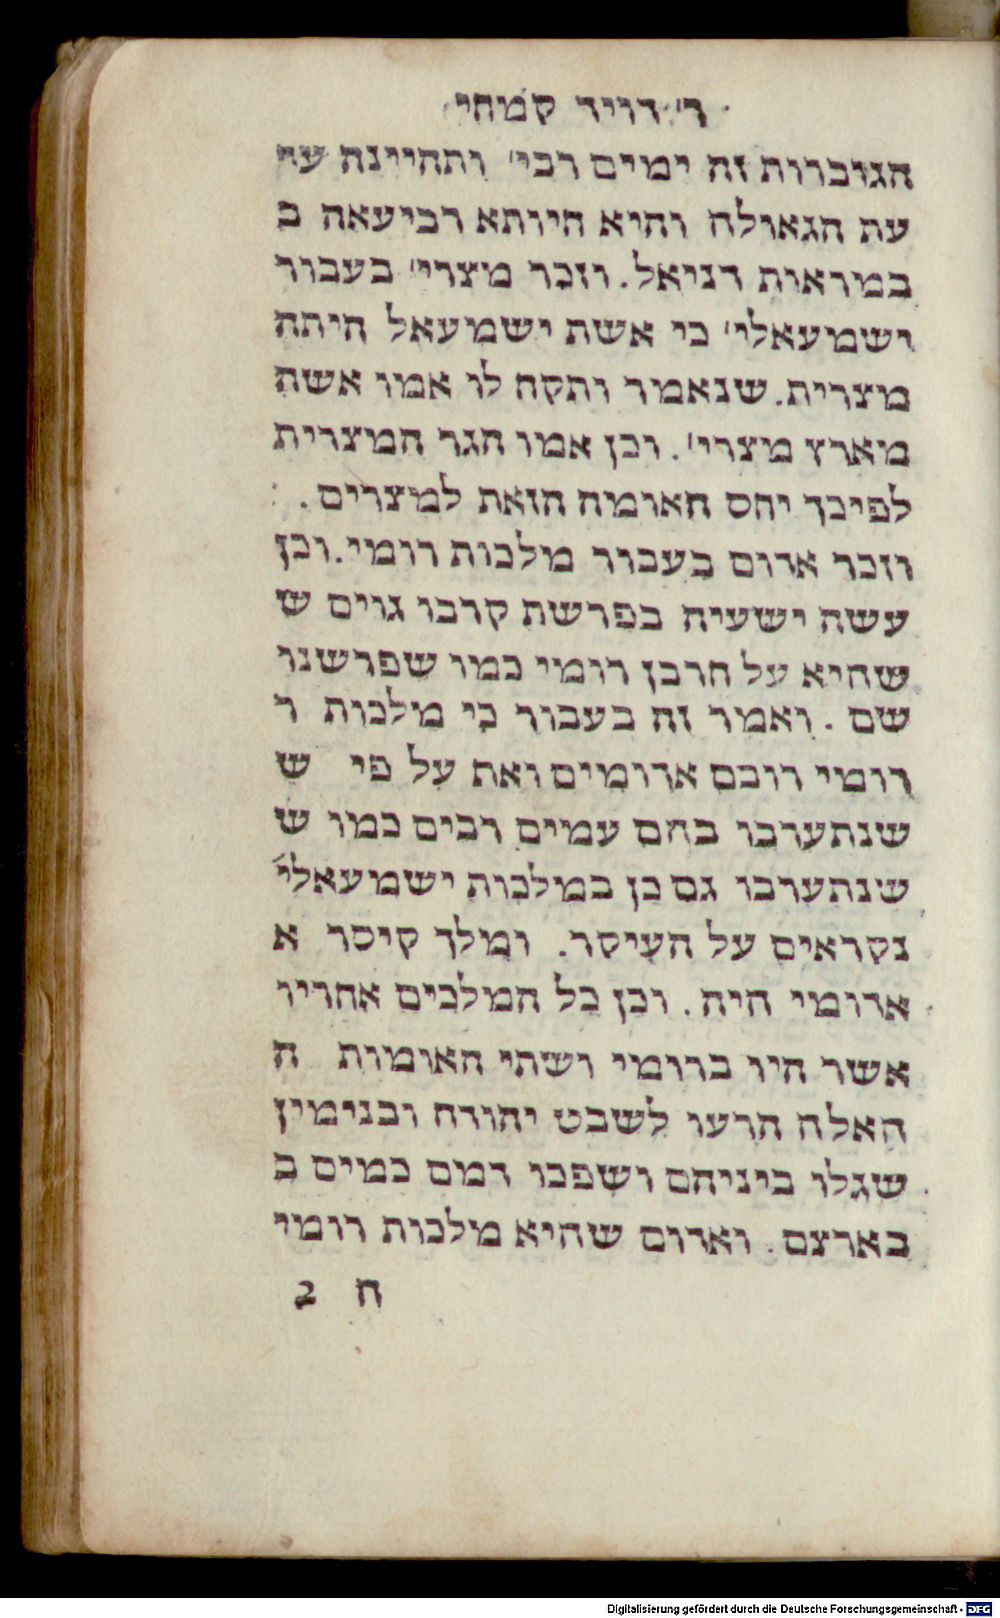 ר׳ דויד קמחי
הגוברות זה ימים רבי׳ ותהיינה עד
עת הגאולה והיא חיותא רביעאה ב
במראות דניאל. וזכר מצרי׳ בעבור
ישמעאלי׳ כי אשת ישמעאל היתה
מצרית. שנאמר ותקח לו אמו אשה
מארץ מצרי׳. וכן אמו הגר המצרית
לפיכך יחס האומה הזאת למצרים. :
וזכר אדום בעבור מלכות רומי. וכן
עשה ישעיה בפרשת קרבו גוים ש
שהיא על חרבן רומי כמו שפרשנו
שם . ואמר זה בעבור כי מלכות ר
רומי רובם אדומים ואת על פי ש
שנתערבו בהם עמים רבים כמו ש
שנתערבו גם כן במלכות ישמעאלי׳
נקראים על העיקר. ומלך קיסר א
אדומי היה. וכן כל המלכים אחריו
אשר היו ברומי ושתי האומות ה
האלה הרעו לשבט יהודה ובנימין
שגלו ביניהם ושפכו דמם כמים ב
בארצם. ואדום שהיא מלכות רומי
ח 2
Digitalisierung gefördert durch die Deutsche Forschungsgemeinschaft - DFG